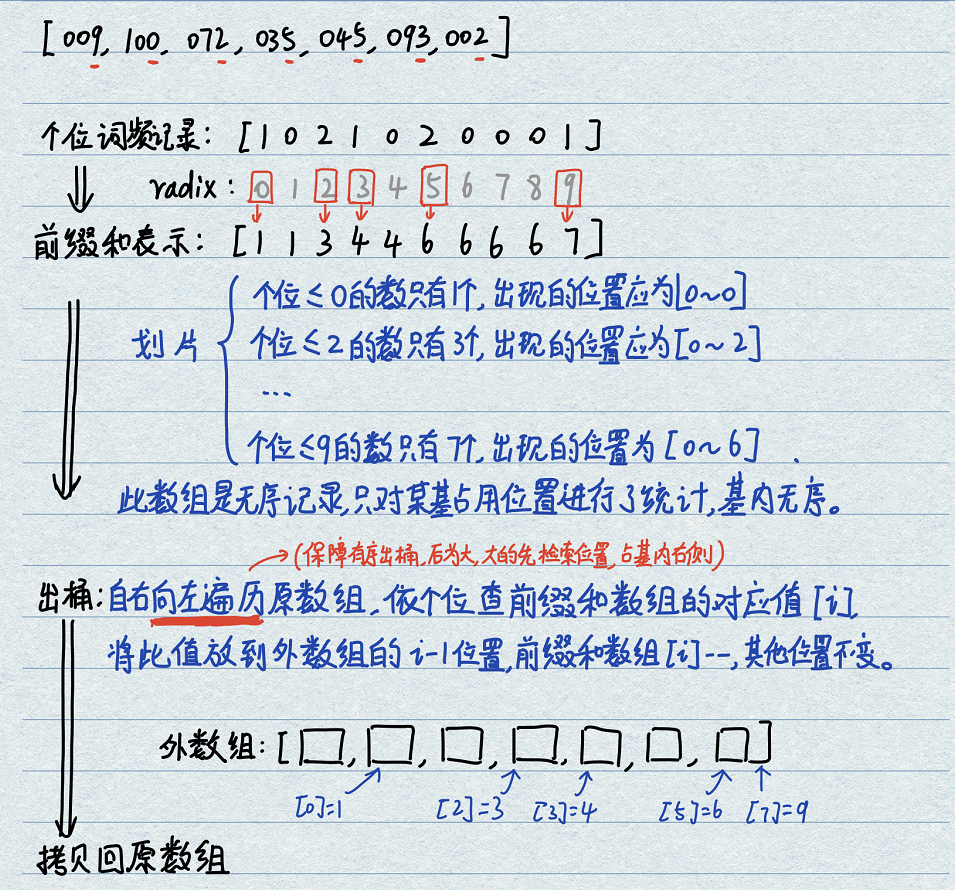 [009, 100, 072, 035, 045, 093, 002]
个位词频记录: [1 0 2 1 0 2 0 0 0 1]
radix: 0 1 2 3 4 5 6 7 8 9
前缀和表示: [1 1 3 4 4 6 6 6 6 7]
划片
个位≤0的数只有1个,出现的位置应为[0~0]
个位≤2的数只有3个,出现的位置应为[0~2]
...
个位≤9的数只有7个,出现的位置为[0~6]
此数组是无序记录,只对某基占用位置进行了统计,基内无序。
(保障有序出桶,后为大,大的先检索位置,占基内右侧)
出桶:自右向左遍历原数组,依个位查前缀和数组的对应值[i],
将此值放到外数组的i-1位置,前缀和数组[i]--,其他位置不变。
外数组:[ , , , , , , ]
[0]=1 [2]=3 [3]=4 [5]=6 [7]=9
拷贝回原数组